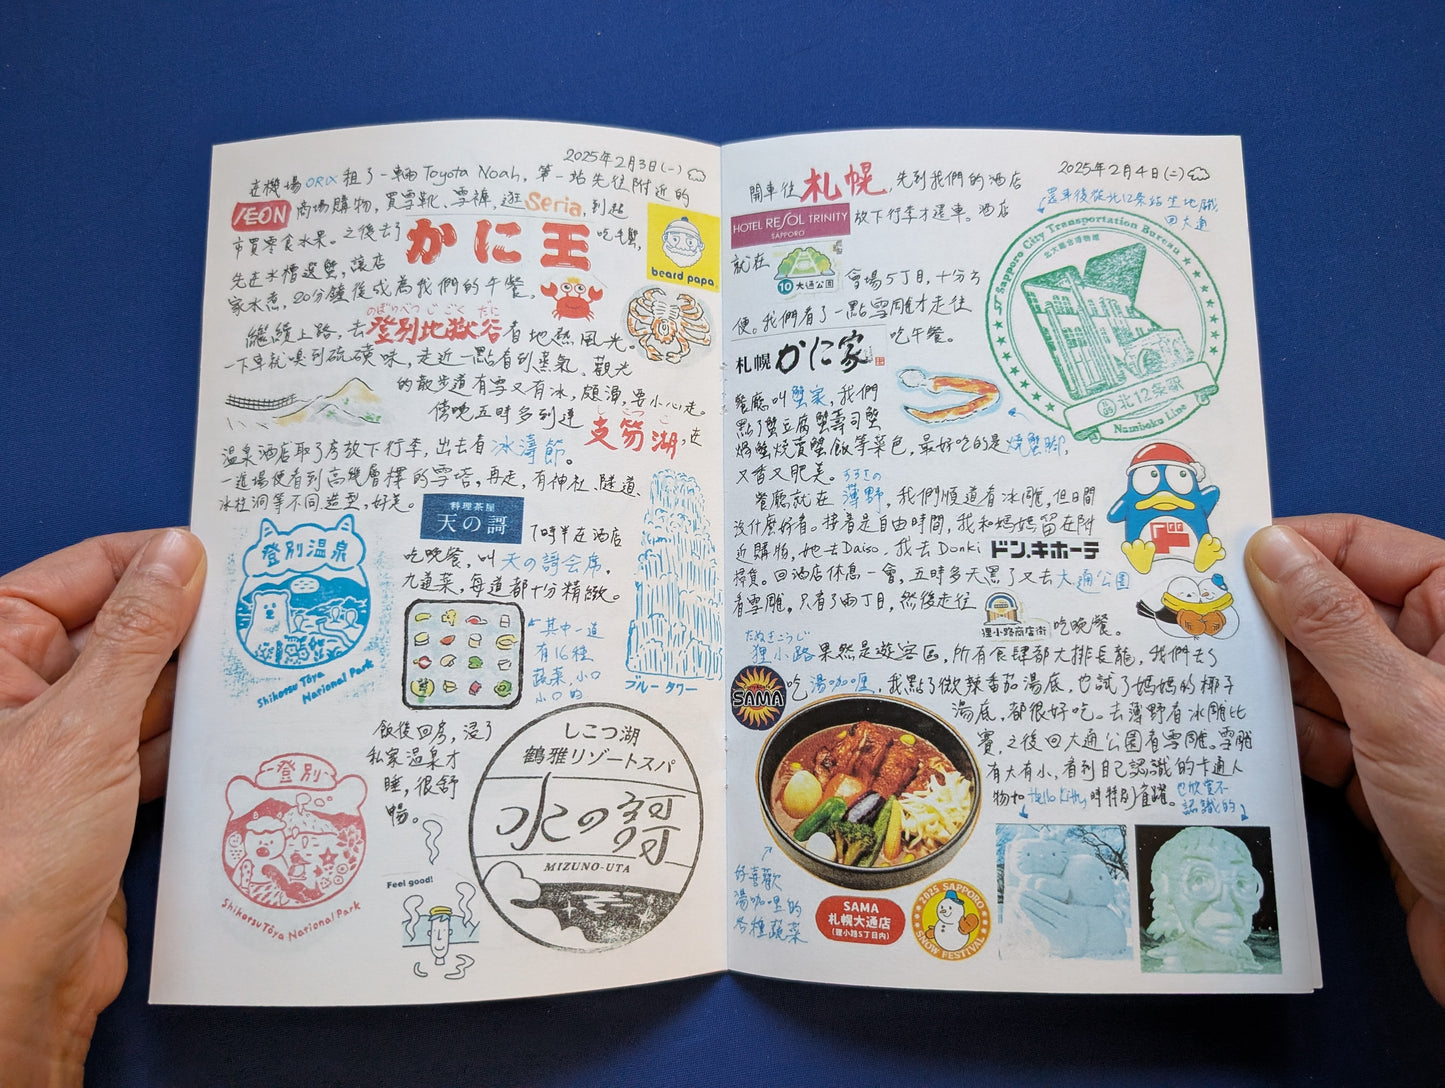 2025年2月3日(一)
在機場ORIX租了一輛Toyota Noah,第一站先往附近的
AEON商場購物,買雪靴、雪褲,逛Seria,到超
市買零食水果。之後去了かに王吃毛蟹,
beard papa
先在水槽選蟹,讓店
家水煮,20分鐘後成為我們的午餐。
のぼりべつ じごく だに
繼續上路,去登別地獄谷看地熱風光。
一下車就嗅到硫磺味,走近一點看到蒸氣、觀光
的散步道有雪又有冰,頗滑,要小心走。
傍晚五時多到達
しこつこ
支笏湖,在
溫泉酒店取了房放下行李,出去看冰濤節。
一進場便看到高幾層樓的雪塔,再走,有神社、隧道、
冰柱洞等不同造型,好美。
料理茶屋
天の謌
7時半在酒店
吃晚餐,叫天の謌会席,
九道菜,每道都十分精緻。
登別温泉
Shikotsu Tōya
National Park
←其中一道
有16種
蔬菜,小口
小口的
ブルータワー
飯後回房,浸了
私家溫泉才
睡,很舒
暢。
登別
Shikotsu Tōya National Park
Feel good!
しこつ湖
鶴雅リゾートスパ
水の謌
MIZUNO-UTA
2025年2月4日(二)
開車往札幌,先到我們的酒店
HOTEL RESOL TRINITY
SAPPORO
放下行李才還車。酒店
還車後從北12条站坐地鐵
回大通
就在
10 大通公園
會場5丁目,十分方
便。我們看了一點雪雕才走往
札幌かに家
吃午餐。
ST Sapporo City Transportation Bureau
北大総合博物館
北12条駅
Namboku Line
餐廳叫蟹家,我們
點了蟹豆腐蟹壽司蟹
焗蟹燒賣蟹飯等菜色,最好吃的是燒蟹腳,
又香又肥美。すすきの
餐廳就在薄野,我們順道看冰雕,但日間
沒什麼好看。接着是自由時間,我和媽媽留在附
近購物,她去Daiso,我去Donkiドン.キホーテ
掃貨。回酒店休息一會,五時多天黑了又去大通公園
看雪雕,只看了兩丁目,然後走往
狸小路商店街
吃晚餐。
たぬきこうじ
狸小路果然是遊客區,所有食肆都大排長龍,我們去了
SAMA
吃湯咖喱,我點了微辣番茄湯底,也試了媽媽的椰子
湯底,都很好吃。去薄野看冰雕比
賽,之後回大通公園看雪雕。雪雕
有大有小,看到自己認識的卡通人
物如Hello Kitty時特別雀躍。也欣賞不
認識的
好喜歡
湯咖哩的
各種蔬菜
SAMA
札幌大通店
(狸小路5丁目内)
2025 SAPPORO
SNOW FESTIVAL